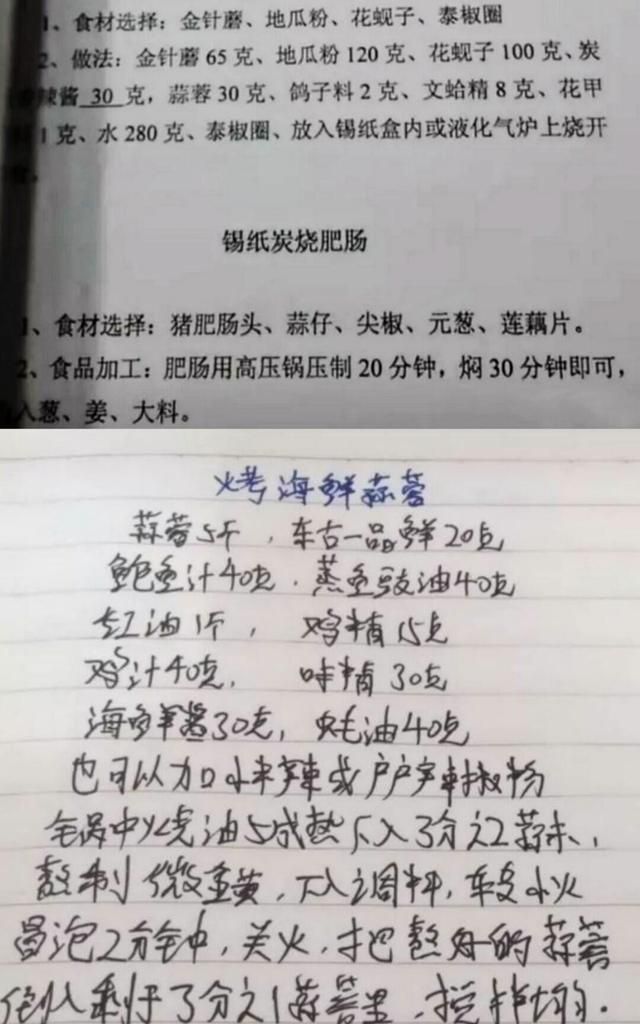 1、食材选择：金针蘑、地瓜粉、花蚬子、泰椒圈
2、做法：金针蘑 65 克、地瓜粉 120 克、花蚬子 100 克、炭
辣酱 30 克，蒜蓉 30 克、鸽子料 2 克、文蛤精 8 克、花甲
1 克、水 280 克、泰椒圈、放入锡纸盒内或液化气炉上烧开
锡纸炭烧肥肠
1、食材选择：猪肥肠头、蒜仔、尖椒、元葱、莲藕片。
2、食品加工：肥肠用高压锅压制 20 分钟，焖 30 分钟即可，
入葱、姜、大料。
烤海鲜蒜蓉
蒜蓉5斤，东古一品鲜20克
鲍鱼汁40克．蒸鱼豉油40克
红油1斤，鸡精15克
鸡汁40克，味精30克
海鲜酱30克，蚝油40克
也可以加小米辣或户户辣椒粉
锅中火烧油5成热下入3分之2蒜末，
熬制微金黄．下入调料，转小火
冒泡2分钟，关火，把熬好的蒜蓉
倒入剩于3分之1蒜蓉里．搅拌均匀．